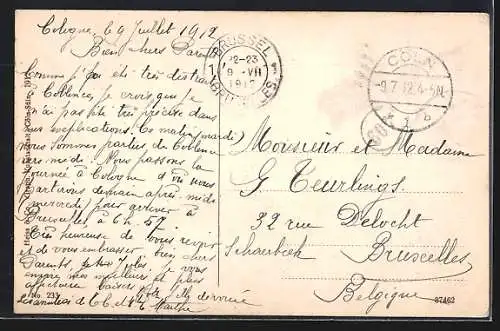 Cologne, le 9 Juillet 1912
Bien chers Parents
Comme j'ai été très distrait
Coblence, je crois que je
n'ai pas été très précise dans
mes explications. Ce matin (mardi)
nous sommes parties, de Coblence
vers midi. Nous passons la
journée à Cologne d'où nous
partirons demain après-midi
(mercredi) pour arriver à
Bruxelles à 6h 57.
Très heureuse de vous revoir
et de vous embrasser bien chers
Parents, je vous
envoie mes meilleurs et plus
affectueux baisers
Marthe
No. 23
BRUSSEL
22-23
9 VII
1912
CÖLN
9.7.12.4-5N.
* 1 b
Monsieur et Madame
G Teurlings
32 rue Delocht
Schaerbeek Bruxelles
Belgique
27462